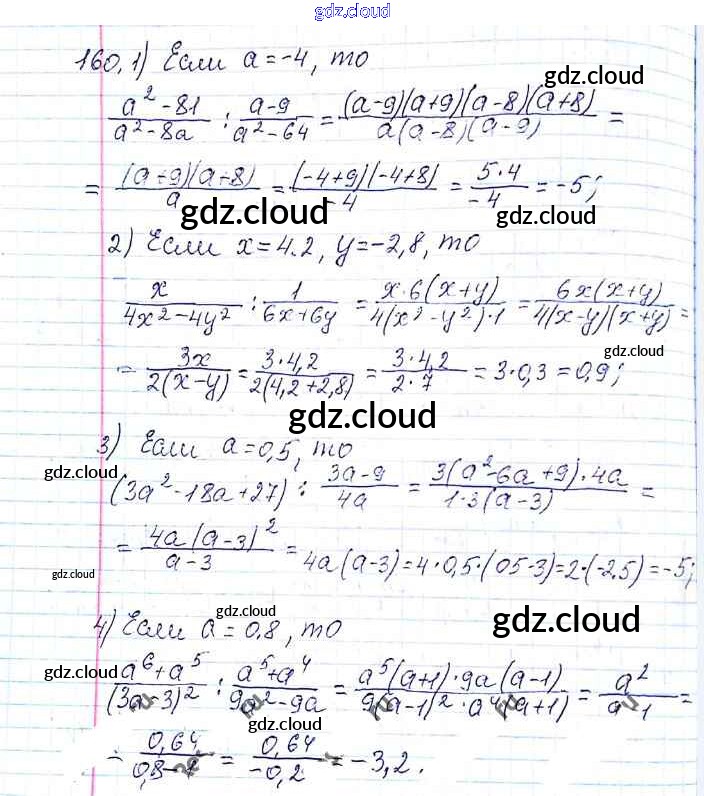 gdz.cloud
160. 1) Если a = -4, то
gdz.cloud
(a² - 81)/(a² - 8a) : (a - 9)/(a² - 64) = ((a - 9)(a + 9)(a - 8)(a + 8))/(a(a - 8)(a - 9)) =
= ((a + 9)(a + 8))/a = ((-4 + 9)(-4 + 8))/(-4) = (5 · 4)/(-4) = -5;
gdz.cloud gdz.cloud
2) Если x = 4.2, y = -2,8, то
x/(4x² - 4y²) : 1/(6x + 6y) = (x · 6(x + y))/(4(x² - y²) · 1) = (6x(x + y))/(4(x - y)(x + y)) =
gdz.cloud
= 3x/(2(x - y)) = (3 · 4,2)/(2(4,2 + 2,8)) = (3 · 4,2)/(2 · 7) = 3 · 0,3 = 0,9;
gdz.cloud
3) Если a = 0,5, то
gdz.cloud
(3a² - 18a + 27) : (3a - 9)/(4a) = (3(a² - 6a + 9) · 4a)/(1 · 3(a - 3)) =
= (4a(a - 3)²)/(a - 3) = 4a(a - 3) = 4 · 0,5 · (05 - 3) = 2 · (-2.5) = -5;
gdz.cloud
gdz.cloud
4) Если a = 0.8, то
gdz.cloud
gdz.cloud
(a⁶ + a⁵)/(3a - 3)² : (a⁵ + a⁴)/(9a² - 9a) = (a⁵(a + 1) · 9a(a - 1))/(9(a - 1)² · a⁴(a + 1)) = a²/(a - 1) =
gdz.cloud
= 0,64/(0,8 - 1) = 0,64/(-0,2) = -3,2.